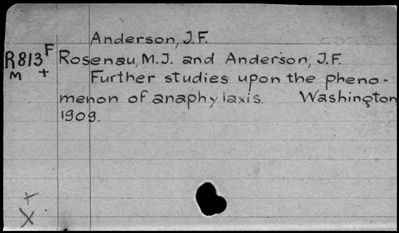 Anderson, J.F.
R813F Rosenau, M.J. and Anderson, J.F.
M + Further studies upon the pheno-
menon of anaphylaxis. Washington
1909.
+
X